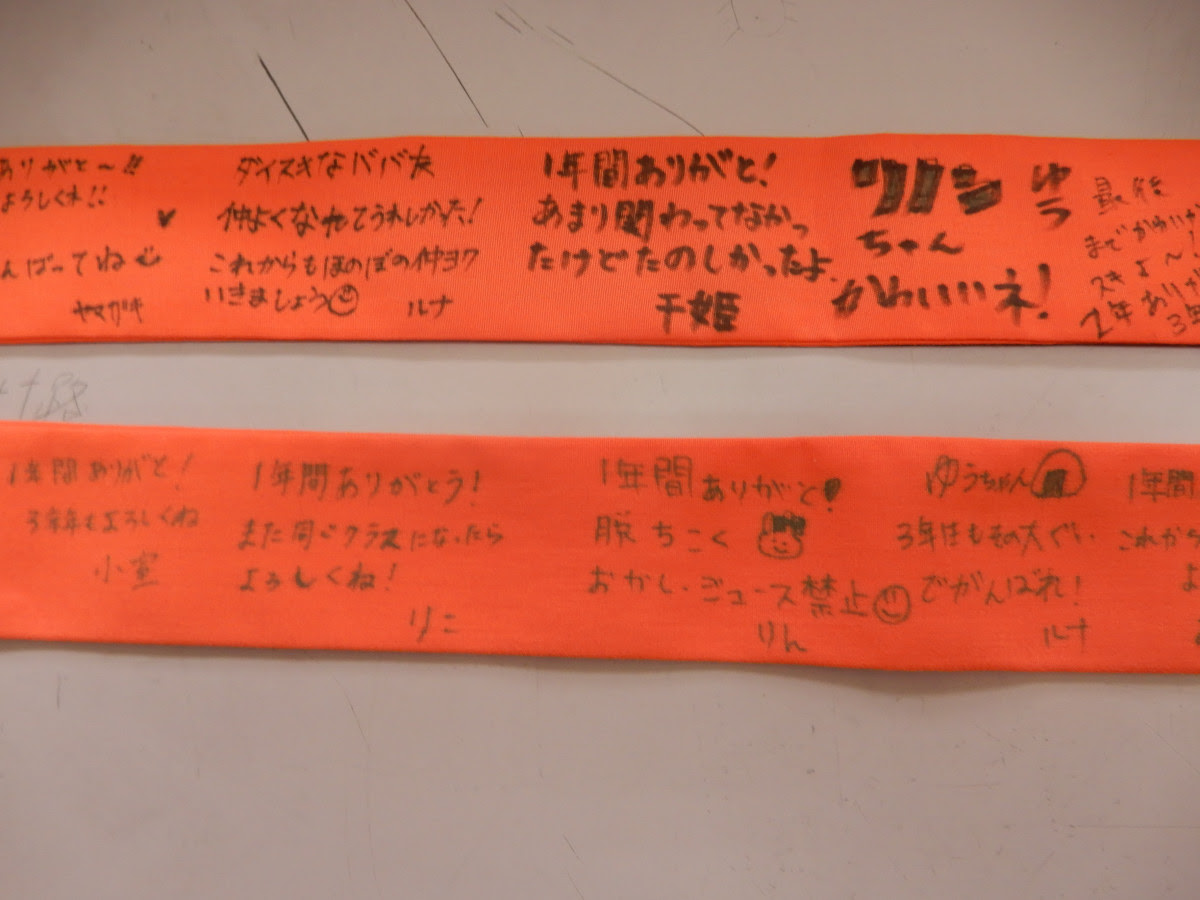 ありがと〜!!
よろしくね!!
んばってね
ヤマガキ
ダイスキなババ友
仲よくなれてうれしかった!
これからもほのぼの仲ヨク
いきましょう
ルナ
1年間ありがと!
あまり関わってなかっ
たけどたのしかったよ
千姫
ちゃん
かわいいネ!
ゆう
最後
までかわいい
スキよ〜!
2年あり
3年
1年間ありがと!
3年年もよろしくね
小室
1年間ありがとう!
また同じクラスになったら
よろしくね!
りこ
1年間ありがと!
脱ちこく
おかし・ジュース禁止
りん
ゆうちゃん
3年はもの大ぐい
でがんばれ!
ルナ
1年間
これから
よ